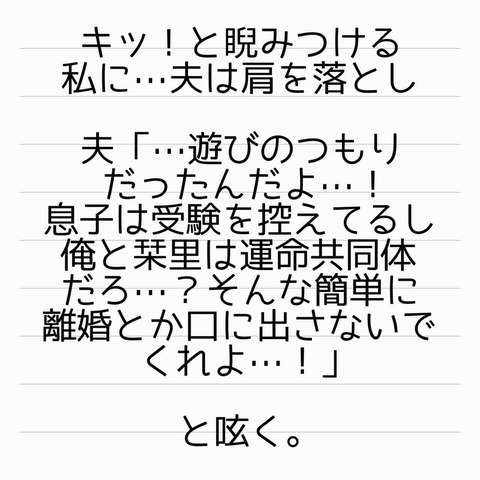 キッ！と睨みつける
私に…夫は肩を落とし
夫「…遊びのつもり
だったんだよ…！
息子は受験を控えてるし
俺と栞里は運命共同体
だろ…？そんな簡単に
離婚とか口に出さないで
くれよ…！」
と呟く。